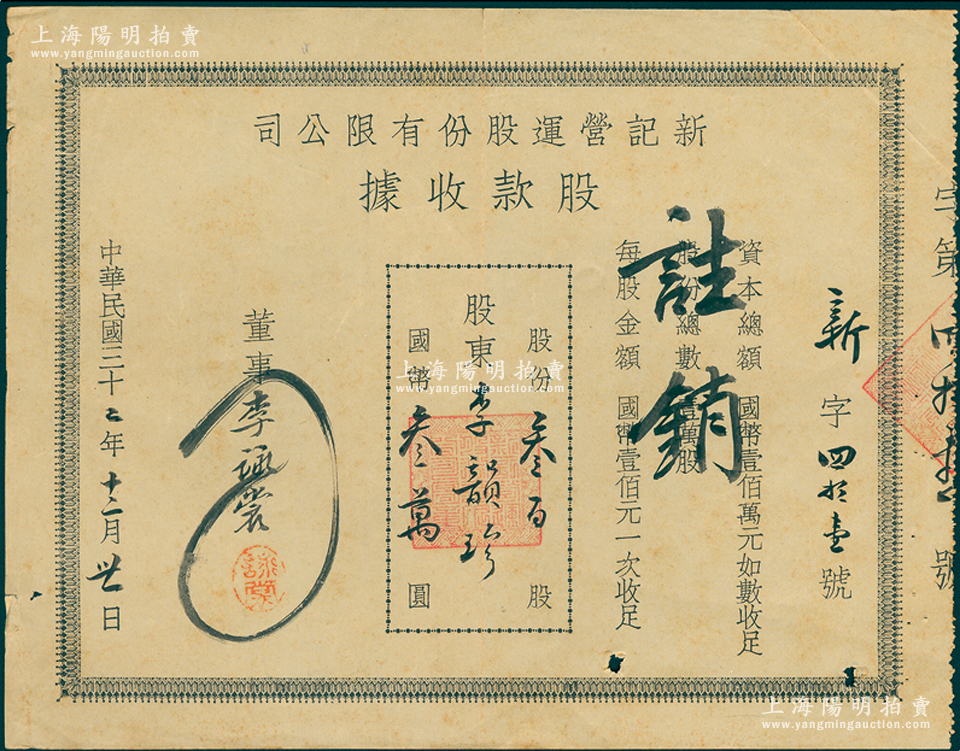 上海陽明拍賣
www.yangmingauction.com
上海陽明拍賣
www.yangmingauction.com
新記營運股份有限公司
股款收據
字第
號
新字四拾壹號
資本總額 國幣壹佰萬元如數收足
股份總數 壹萬股
每股金額 國幣壹佰元一次收足
註銷
股份叁百股
股東李韻珍
國幣叁萬圓
上海陽明拍賣
www.yangmingauction.com
董事李詠裳
詠裳
中華民國三十二年十二月廿日
上海陽明拍賣
www.yangmingauction.com